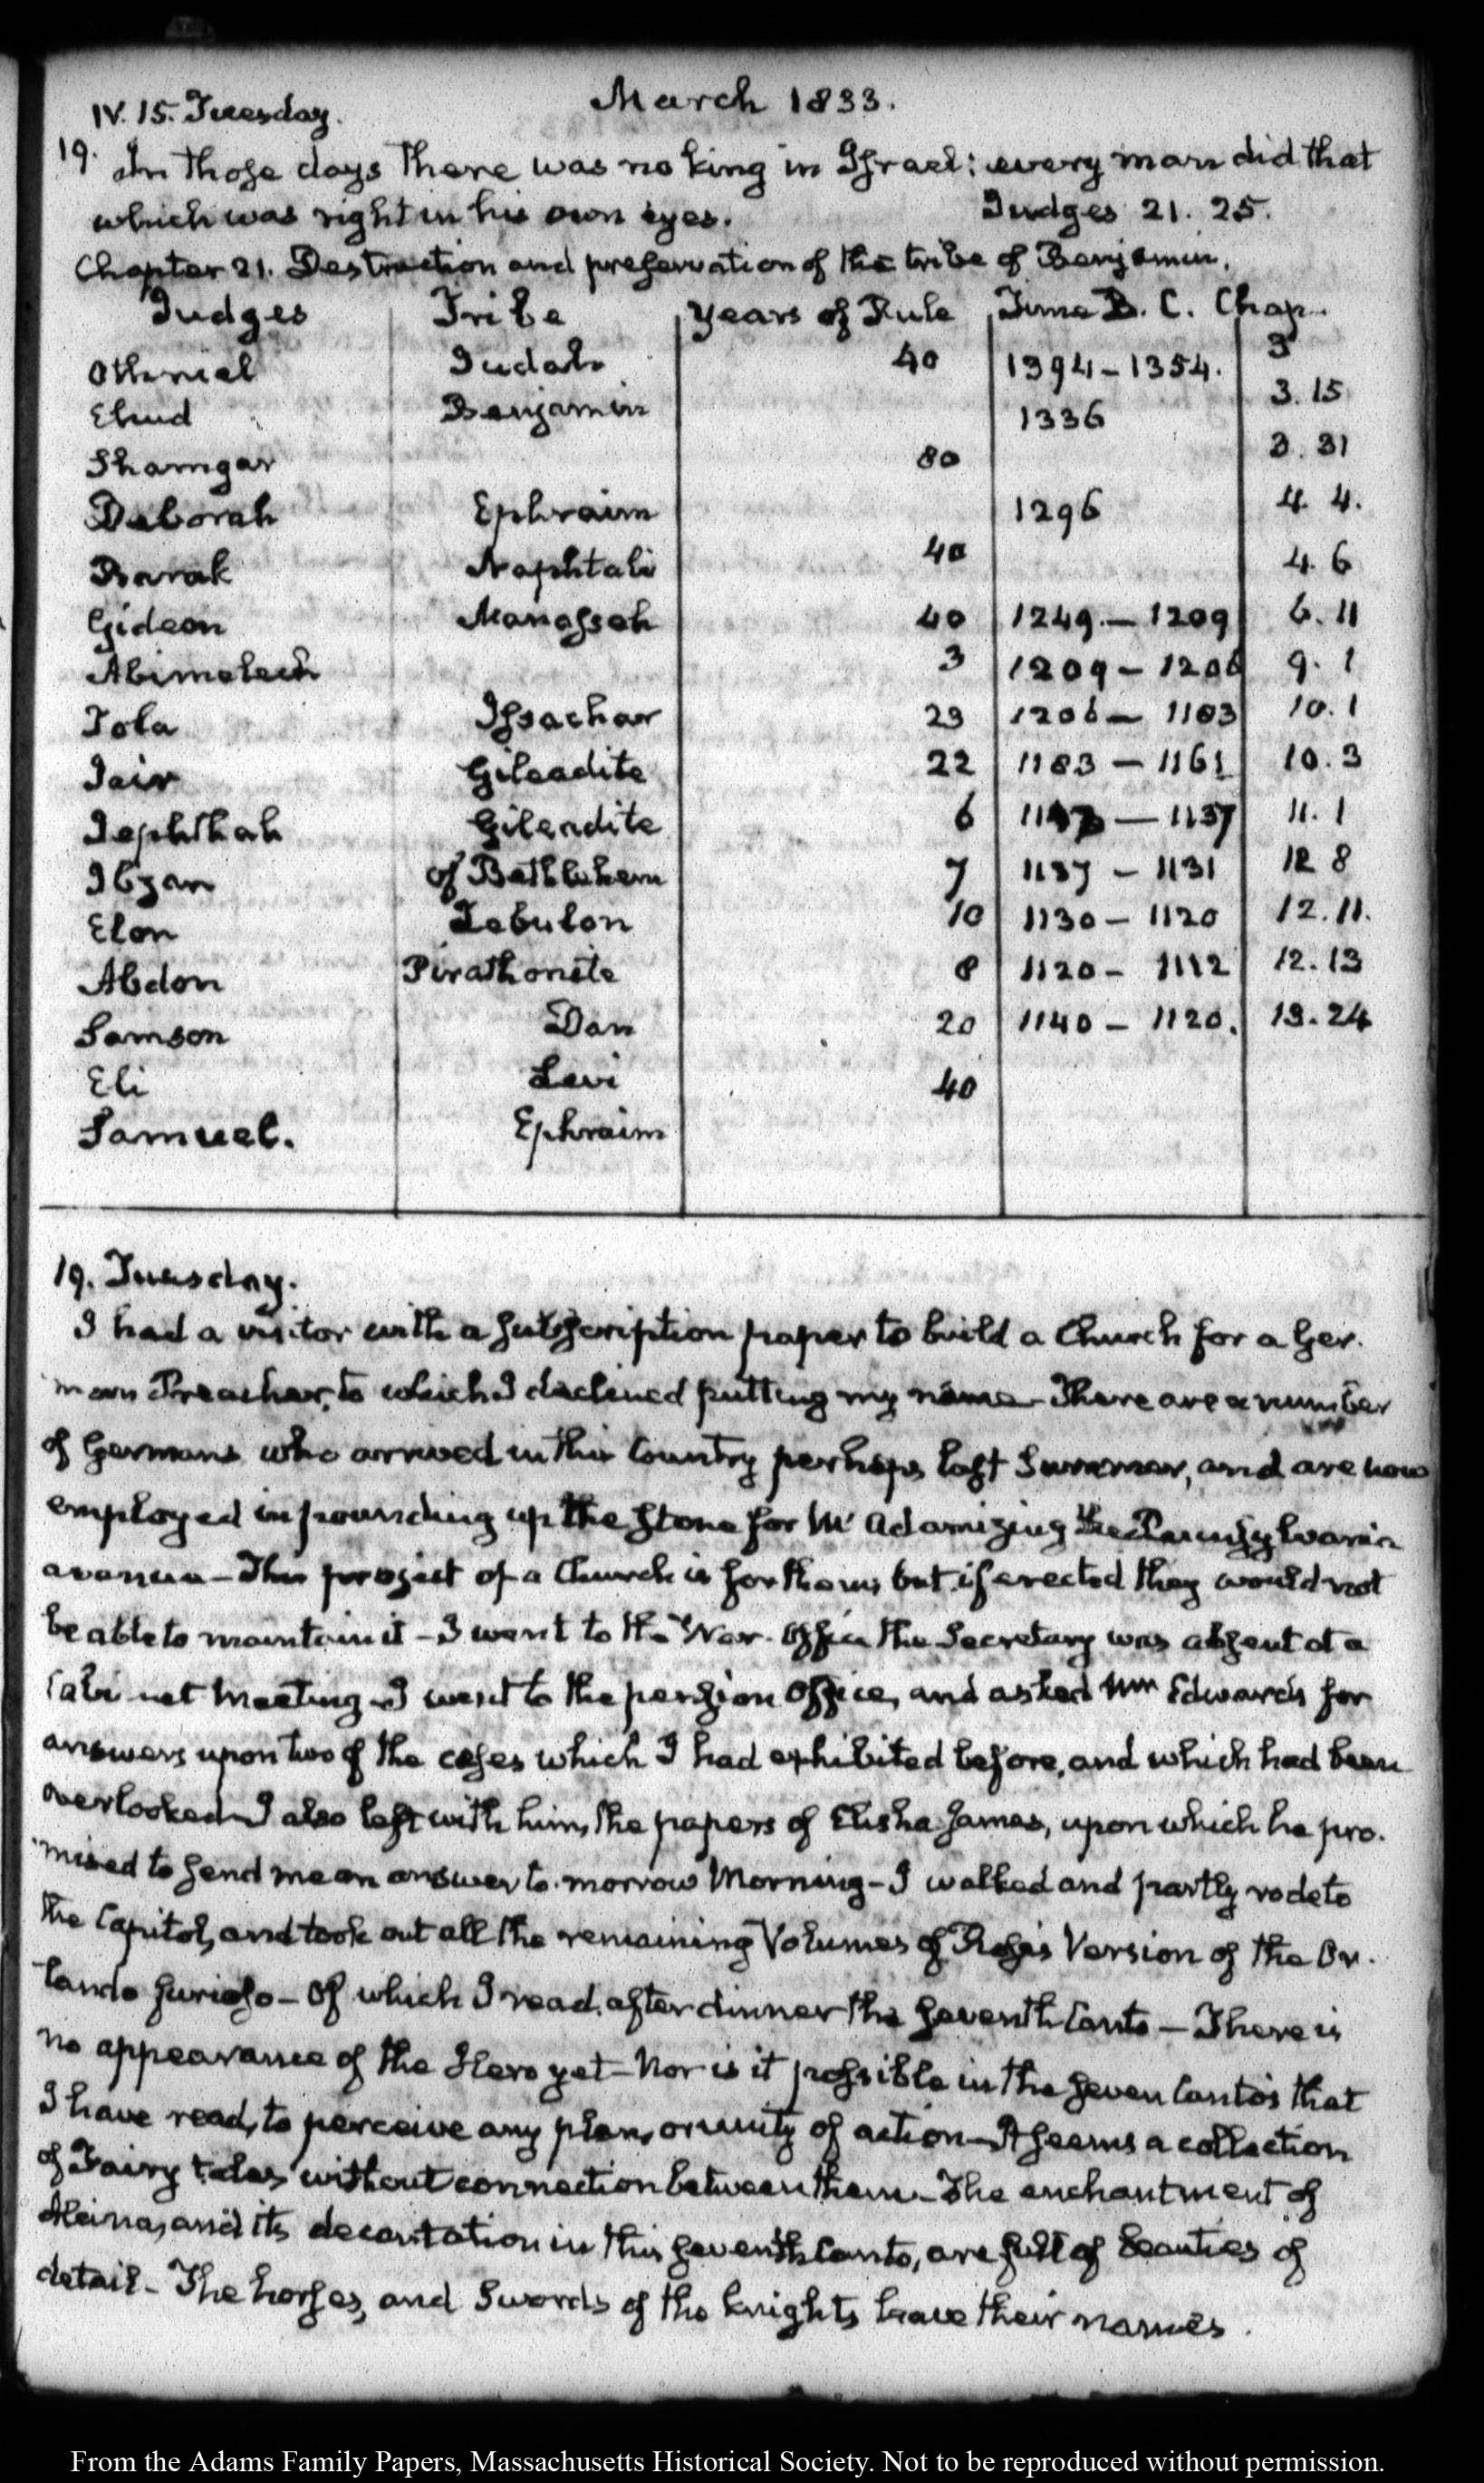 March 1833.
IV. 15. Tuesday.
19. In those days there was no king in Israel: every man did that
which was right in his own eyes. Judges 21. 25.
Chapter 21. Destruction and preservation of the tribe of Benjamin.
Judges Tribe Years of Rule Time B. C. Chap.
Othniel Judah 40 1394-1354. 3
Ehud Benjamin 1336 3.15
Shamgar 80 3.31
Deborah Ephraim 1296 4 4.
Barak Naphtali 40 4.6
Gideon Manasseh 40 1249.-1209 6.11
Abimelech 3 1209-1206 9.1
Tola Issachar 23 1206-1183 10.1
Jair Gileadite 22 1183-1161 10.3
Jephthah Gileadite 6 1143-1137 11.1
Ibzan of Bethlehem 7 1137-1131 12 8
Elon Zebulon 10 1130-1120 12.11.
Abdon Pirathonite 8 1120-1112 12.13
Samson Dan 20 1140-1120. 13.24
Eli Levi 40
Samuel. Ephraim
19. Tuesday.
I had a visitor with a subscription paper to build a Church for a Ger-
man Preacher, to which I declined putting my name- There are a number
of Germans who arrived in this Country perhaps last Summer, and are now
employed in pounding up the stone for McAdamizing the Pennsylvania
avenue- This project of a Church is for them, but if erected they would not
be able to maintain it- I went to the War-Office the Secretary was absent at a
Cabinet Meeting- I went to the pension Office, and asked Mr Edwards for
answers upon two of the cases which I had exhibited before, and which had been
overlooked- I also left with him, the papers of Elisha James, upon which he pro-
mised to send me an answer to-morrow Morning- I walked and partly rode to
the Capitol, and took out all the remaining Volumes of Rose's Version of the Or-
lando furioso- Of which I read after dinner the seventh Canto- There is
no appearance of the Hero yet- Nor is it possible in the seven Cantos that
I have read, to perceive any plan, or unity of action- It seems a collection
of Fairy tales without connection between them- The enchantment of
Alcina, and its decantation in this seventh Canto, are full of beauties of
detail- The horses, and Swords of the knights have their names.
From the Adams Family Papers, Massachusetts Historical Society. Not to be reproduced without permission.